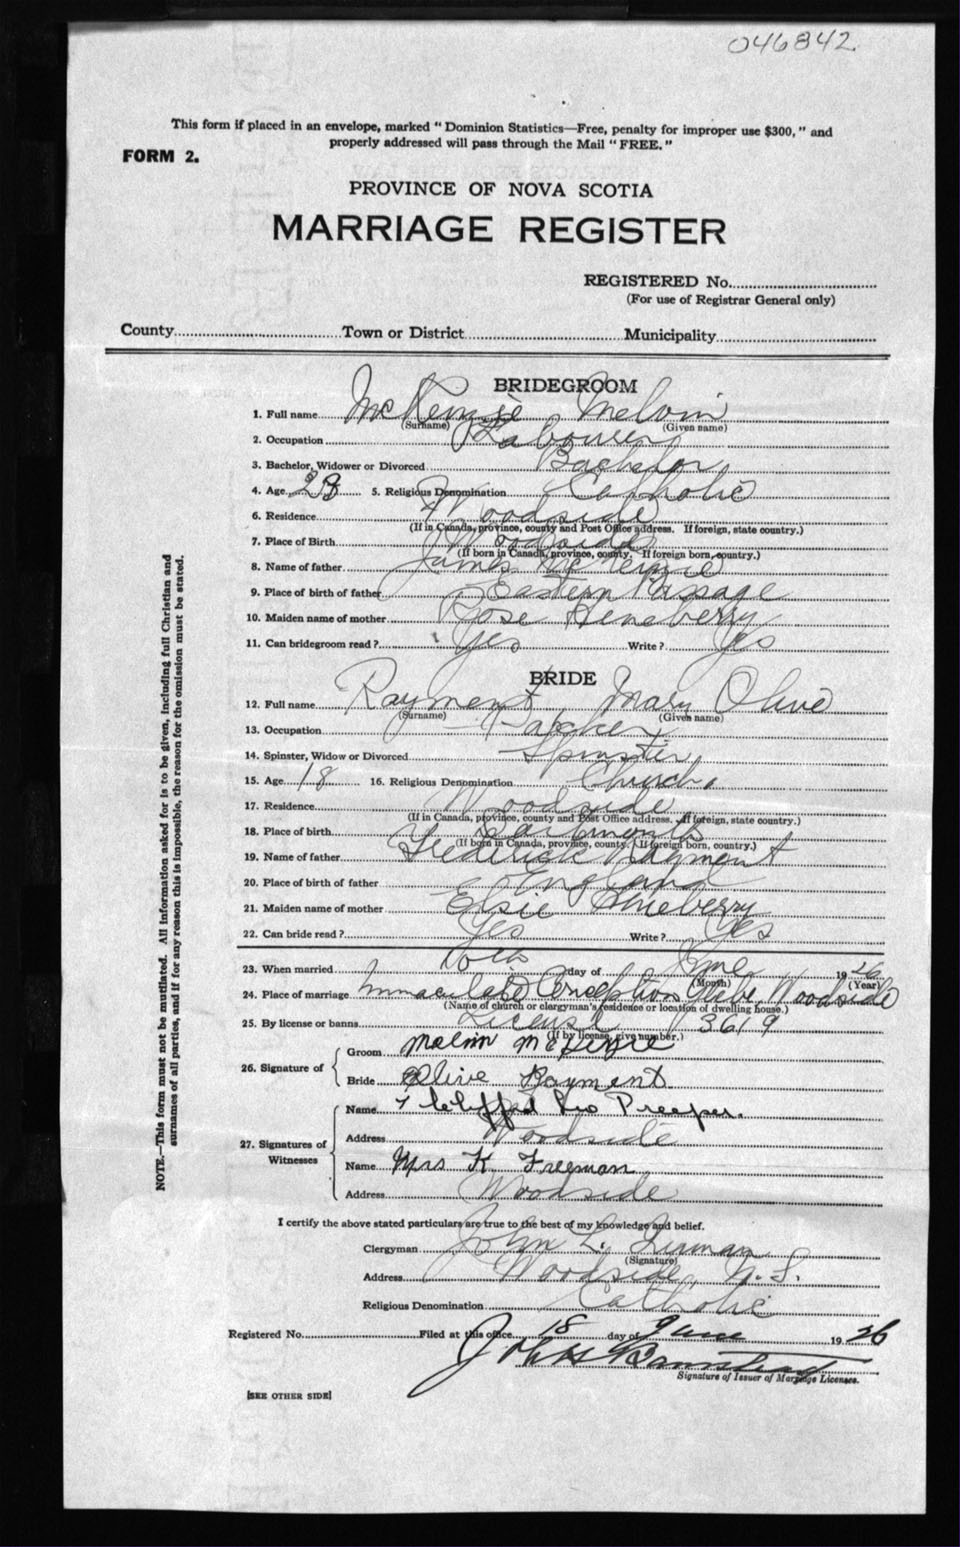 046842.
This form if placed in an envelope, marked "Dominion Statistics—Free, penalty for improper use $300," and
properly addressed will pass through the Mail "FREE."
FORM 2.
PROVINCE OF NOVA SCOTIA
MARRIAGE REGISTER
REGISTERED No.
(For use of Registrar General only)
County Town or District Municipality
BRIDEGROOM
1. Full name McKenzie Melvin
(Surname) (Given name)
2. Occupation Labourer
3. Bachelor, Widower or Divorced Bachelor
4. Age 23 5. Religious Denomination Catholic
6. Residence Woodside
(If in Canada, province, county and Post Office address. If foreign, state country.)
7. Place of Birth Woodside
(If born in Canada, province, county. If foreign born, country.)
8. Name of father James McKenzie
9. Place of birth of father Eastern Passage
10. Maiden name of mother Rose Heneberry
11. Can bridegroom read? Yes Write? Yes
BRIDE
12. Full name Rayment Mary Olive
(Surname) (Given name)
13. Occupation
14. Spinster, Widow or Divorced Spinster
15. Age 18 16. Religious Denomination Church
17. Residence Woodside
(If in Canada, province, county and Post Office address. If foreign, state country.)
18. Place of birth Dartmouth
(If born in Canada, province, county. If foreign born, country.)
19. Name of father Frederick Rayment
20. Place of birth of father England
21. Maiden name of mother Elsie
22. Can bride read? Yes Write? Yes
23. When married day of June 1926
(Month) (Year)
24. Place of marriage Immaculate Conception Glebe, Woodside
(Name of church or clergyman's residence or location of dwelling house.)
25. By license or banns License 3619
(If by license, give number.)
26. Signature of
Groom Melvin McKenzie
Bride Olive Rayment
27. Signatures of
Witnesses
Name Leo Preeper.
Address Woodside
Name Mrs K. Freeman
Address Woodside
I certify the above stated particulars are true to the best of my knowledge and belief.
Clergyman John L.
(Signature)
Address Woodside, N.S.
Religious Denomination Catholic
Registered No. Filed at this office 18 day of June 1926
John
Signature of Issuer of Marriage Licenses.
[SEE OTHER SIDE]
NOTE.—This form must not be mutilated. All information asked for is to be given, including full Christian and
surnames of all parties, and if for any reason this is impossible, the reason for the omission must be stated.